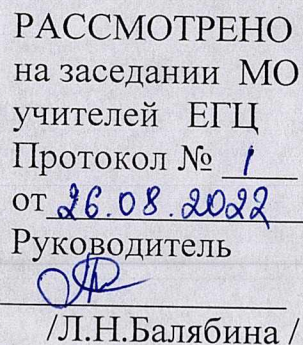 РАССМОТРЕНО
на заседании МО
учителей ЕГЦ
Протокол № 1
от 26.08.2022
Руководитель
/Л.Н.Балябина /